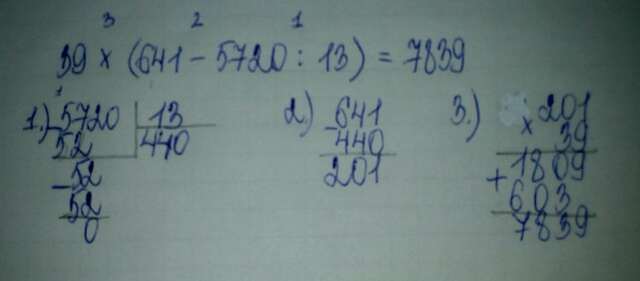 3 2 1
39 × (641 - 5720 : 13) = 7839
1.) 5720 | 13
52 440
- 52
52
0
2) - 641
440
201
3.) × 201
39
+ 1809
603
7839